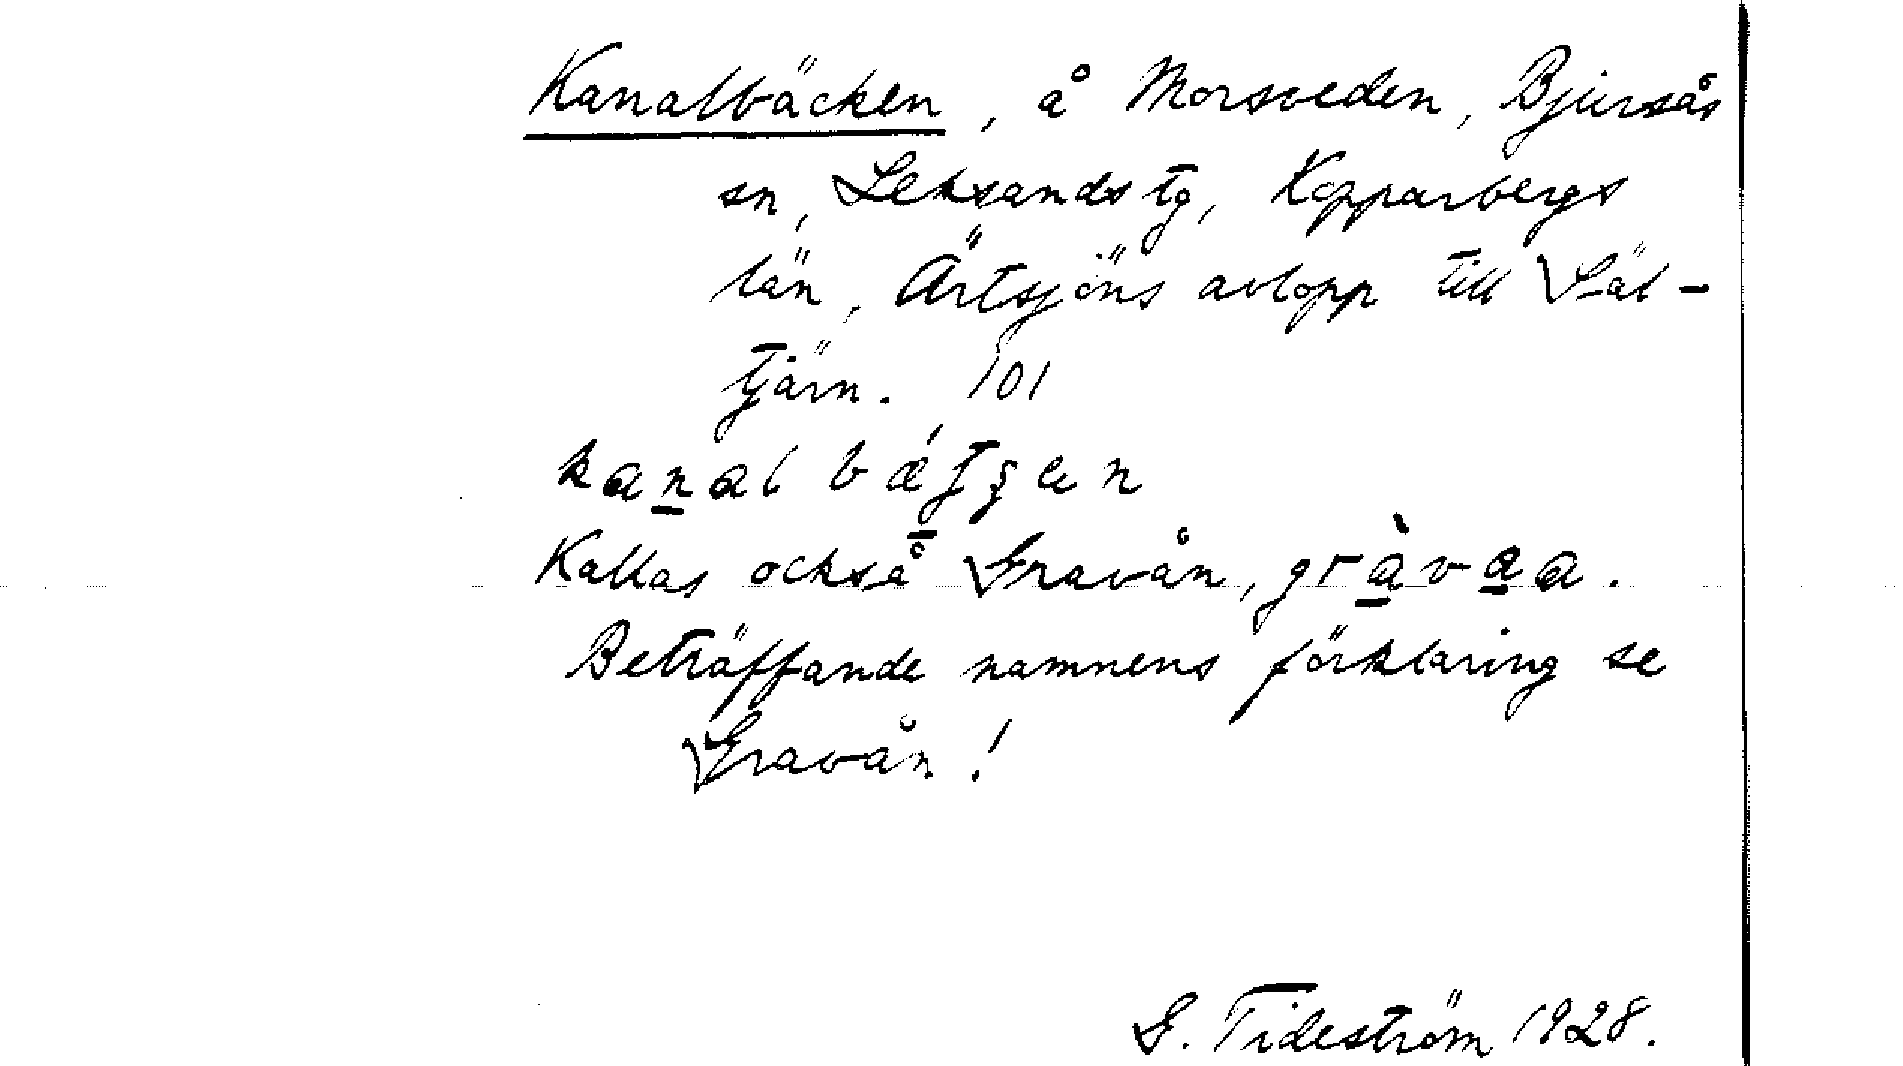 Kanalbäcken, å Morsveden, Bjursås
sn, Leksands tg, Kopparbergs
län, Ärtsjöns avlopp till Lål-
tjärn. 101
kanalbǽtʂen
Kallas också Gravån, gràvaa.
Beträffande namnens förklaring se
Gravån!
G. Tideström 1928.